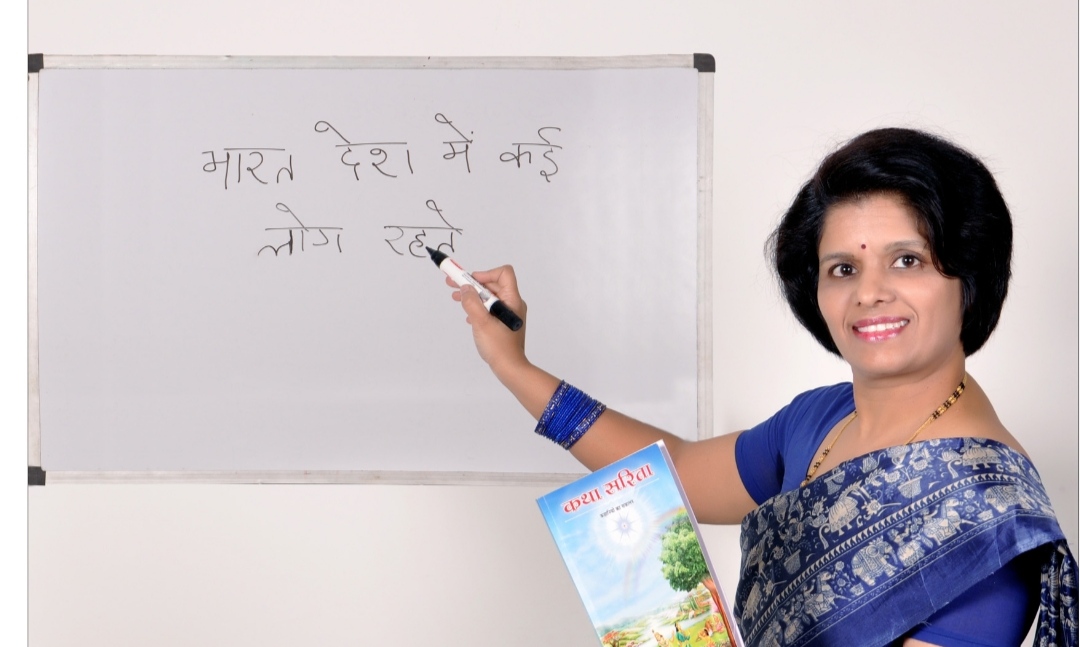 भारत देश में कई
लोग रहते
कथा सरिता